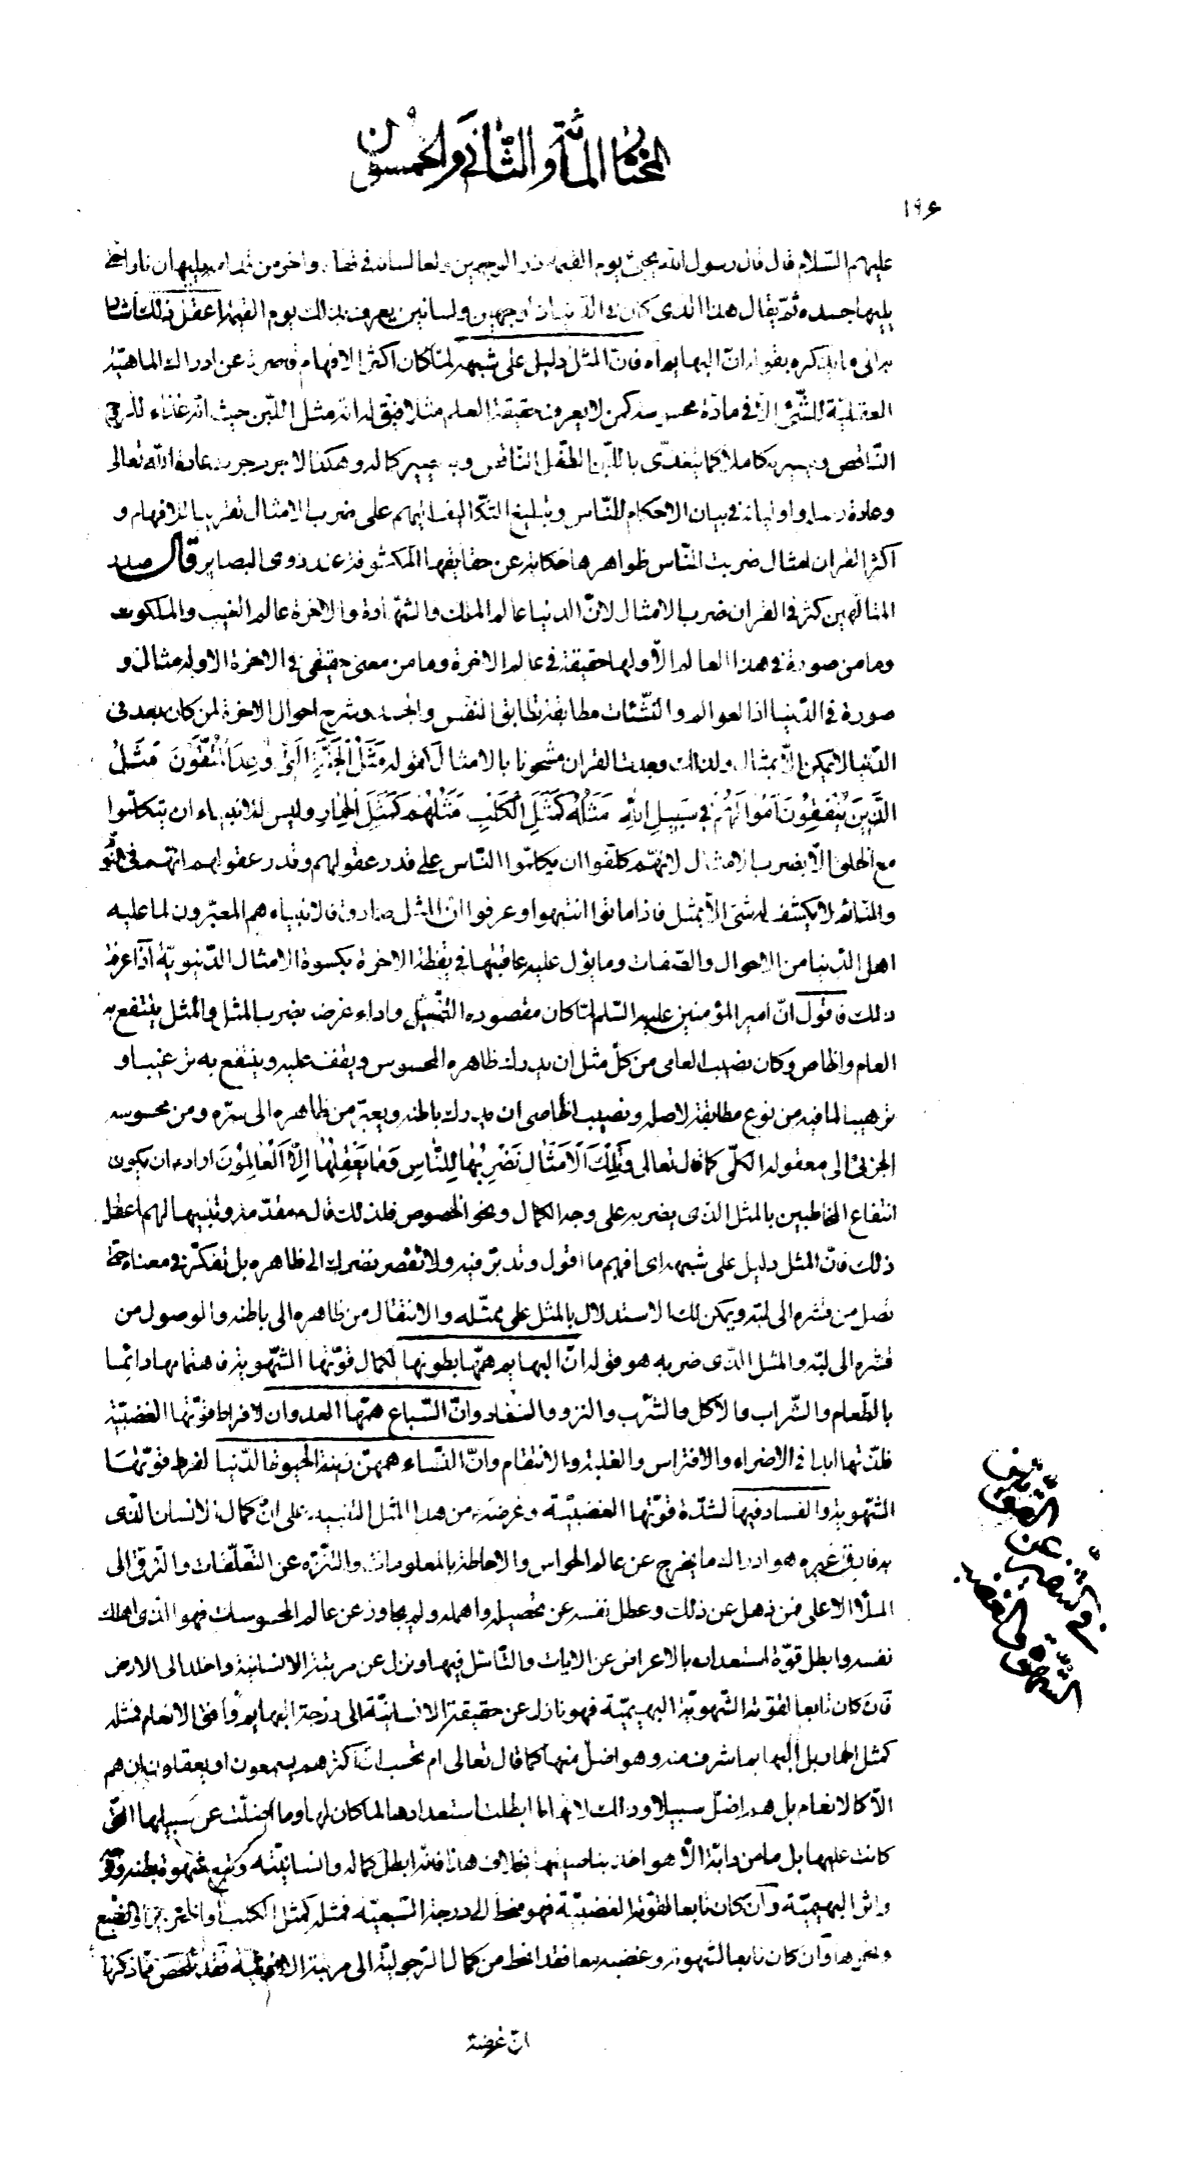 المختار المأة والثاني والخمسون
١٩۶
عليهم السّلام قال قال رسول الله يجئ يوم القيمة ذو الوجهين دالعا لسانه في قفاه واخر من قدامه يلتهبان نارا حتّى
يلهبا جسده ثمّ يقال هذا الذى كان في الدّنيا ذا وجهين ولسانين يعرف بذلك يوم القيمة اعقل ذلك اشارة
الى ما يذكره بقوله انّ البهايم اه فانّ المثل دليل على شبهه لمّا كان اكثر الافهام قاصرة عن ادراك الماهيّة
العقليّة للشّئ الّا في مادّة محسوسة كمن لا يعرف حقيقة العلم مثلا فيق له انّه مثل اللّبن حيث انّه غذاء للرّوح
النّاقص ويصير به كاملا كما يتغذّى باللّبن الطّفل النّاقص ويصير كاملا وهكذا لا جرم جرت عادة الله تعالى
وعادة رسله واوليائه في بيان الاحكام للنّاس وتبليغ التكاليف اليهم على ضرب الامثال تقريبا للافهام و
اكثر القران امثال ضربت للنّاس ظواهرها حكاية عن حقايقها المكشوفة عند ذوى البصاير قال صدر
المتالّهين كثر في القران ضرب الامثال لانّ الدنيا عالم الملك والشّهادة والاخرة عالم الغيب والملكوت
وما من صورة في هذا العالم الّا ولها حقيقة في عالم الاخرة وما من معنى حقيقى في الاخرة الا وله مثال و
صورة في الدّنيا اذ العوالم والنّشئات مطابقة تطابق النفس والجسد وشرح احوال الاخرة لمن كان بعد في
الدّنيا لا يمكن الّا بمثال ولذلك وجدت القران مشحونا بالامثال كقوله مَثَلُ الْجَنَّةِ الَّتِي وُعِدَ الْمُتَّقُونَ مَثَلُ
الَّذِينَ يُنْفِقُونَ أَمْوَالَهُمْ فِي سَبِيلِ اللَّهِ مَثَلُهُ كَمَثَلِ الْكَلْبِ مَثَلُهُمْ كَمَثَلِ الْحِمَارِ وليس للانبياء ان يتكلّموا
مع الخلق الّا بضرب الامثال لانّهم كلّفوا ان يكلّموا النّاس على قدر عقولهم وقدر عقولهم انّهم في النّو
والنّائم لا يكشف له شئ الّا بمثل فاذا ماتوا انتبهوا وعرفوا انّ المثل صادق فالانبياء هم المعبّرون لما عليه
اهل الدّنيا من الاحوال والصّفات وما يؤل عليه عاقبتها في يقظة الاخرة بكسوة الامثال الدّنيويّة اذا عرفت
ذلك فاقول انّ امير المؤمنين عليه السّلم لمّا كان مقصوده التّمثيل واداء غرضه بضرب المثل والمثل ينتفع به
العام والخاص وكان نصيب العامى من كلّ مثل ان يدرك ظاهره المحسوس ويقف عليه وينتفع به ترغيبا و
ترهيبا لما فيه من نوع مطابقة لاصله ونصيب الخاصى ان يدرك باطنه ويعبّر من ظاهره الى سرّه ومن محسوسه
الجزئى الى معقوله الكلّى كما قال تعالى وَتِلْكَ الْأَمْثَالُ نَضْرِبُهَا لِلنَّاسِ وَمَا يَعْقِلُهَا إِلَّا الْعَالِمُونَ اراد ع ان يكون
انتفاع المخاطبين بالمثل الذى يضربه على وجه الكمال ونحو الخصوص فلذلك قال ع مقدّمة وتنبيها لهم اعقل
ذلك فانّ المثل دليل على شبهه اى افهم ما اقول وتدبّر فيه ولا تقصر نظرك الى ظاهره بل تفكّر في معناه حتى
تصل من قشره الى لبّه ويمكن لك الاستدلال بالمثل على ممثّله والانتقال من ظاهره الى باطنه والوصول من
قشره الى لبّه والمثل الذى ضربه هو قوله انّ البهايم همّها بطونها لكمال قوّتها الشّهويّة فاهتمامها دائما
بالطّعام والشّراب والاكل والشّرب والنزو والسفاد وانّ السّباع همّها العدوان لافراط قوّتها الغضبيّة
فلذّتها ابدا في الاضراء والافتراس والغلبة والانتقام وانّ النّساء همهنّ زينة الحيوة الدّنيا لفرط قوّتهنّ
الشّهويّة والفساد فيها لشدّة قوّتها الغضبيّة وغرضه ع من هذا المثل التّنبيه على انّ كمال الانسان الذى
به فاق غيره هو ادراك ما يخرج عن عالم الحواس والاحاطة بالمعلومات والتّنزّه عن التّعلّقات والترقى الى
الملأ الاعلى فمن ذهل عن ذلك وعطل نفسه عن تحصيله واهمله ولم يجاوز عن عالم المحسوسات فهو الذى اهلك
نفسه وابطل قوّة استعداده بالاعراض عن الايات والتّامّل فيها ونزل عن مرتبة الانسانية واخلد الى الارض
فان كان تابعا لقوته الشّهويّة البهيميّة فهو نازل عن حقيقة الانسانيّة الى درجة البهايم وافق الانعام فمثله
كمثل الحمار بل البهايم اشرف منه وهو اضلّ منها كما قال تعالى ام تحسب انّ اكثرهم يسمعون او يعقلون ان هم
الّا كالانعام بل هم اضلّ سبيلا وذلك لانها ما ابطلت استعدادها لما كان لها وما اضلّت عن سبيلها التى
كانت عليها بل ما من دابّة الّا هو اخذ بناصيتها بخلاف هذا فانّه ابطل كماله وانسانيّته وتبع شهوة بطنه وفرجه
واثر البهيميّة وان كان تابعا لقوّته الغضبيّة فهو منحط الى درجة السّبعيّة فمثله كمثل الكلب او الخنزير او الضّبع
ونحوها وان كان تابعا لشهوته وغضبه معا فقد انحط من كمال الرّجوليّة الى مرتبة الانوثيّة فقد تلخّص ممّا ذكرنا
انّ غرضه
في التّنفير عن القوّتين
الشّهوية والغضبية